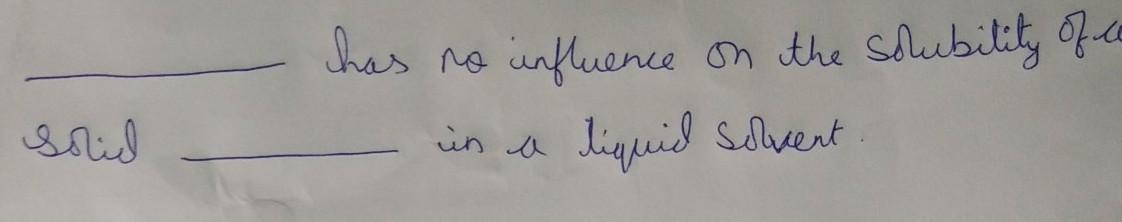 __________ has no influence on the solubility of a
solid __________ in a liquid solvent.